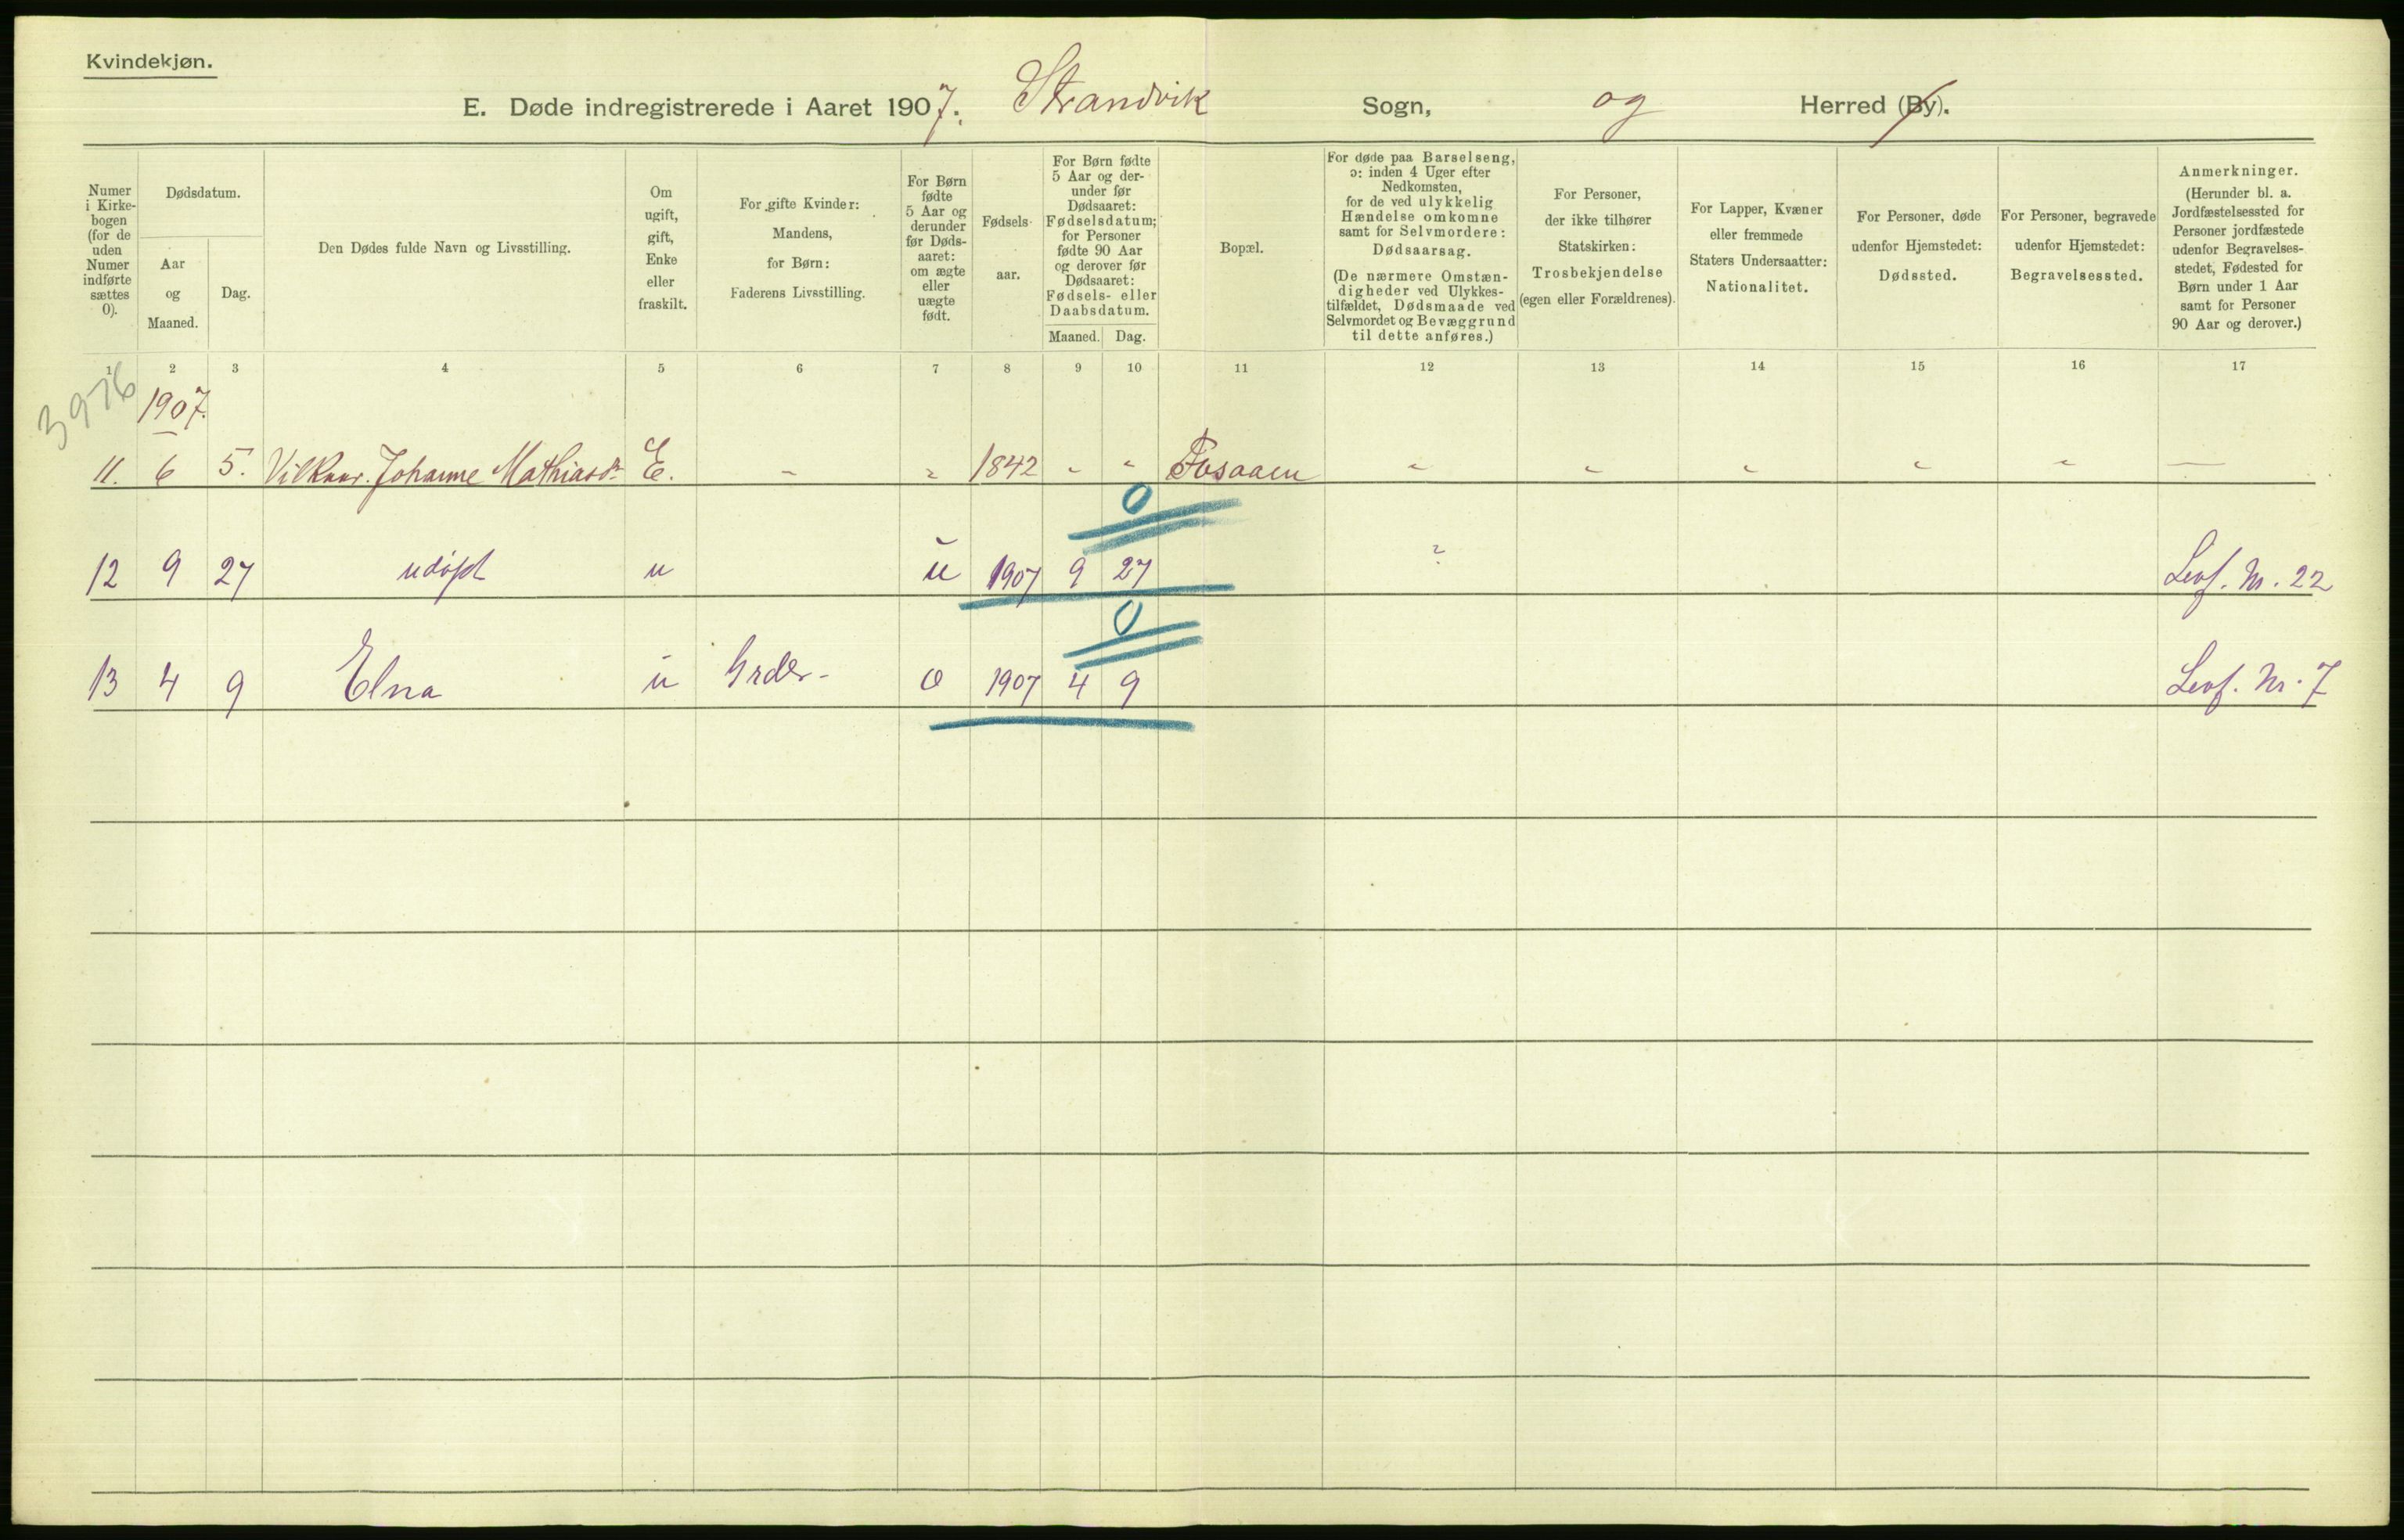 Kvindekjøn.
E. Døde indregistrerede i Aaret 1907. Strandvik Sogn, og Herred (By).
Numer i Kirkebogen (for de uden Numer indførte sættes 0).
Dødsdatum.
Aar og Maaned.
Dag.
Den Dødes fulde Navn og Livsstilling.
Om ugift, gift, Enke eller fraskilt.
For gifte Kvinder: Mandens, for Børn: Faderens Livsstilling.
For Børn fødte 5 Aar og derunder før Dødsaaret: om ægte eller uægte født.
Fødselsaar.
For Børn fødte 5 Aar og derunder før Dødsaaret: Fødselsdatum; for Personer fødte 90 Aar og derover før Dødsaaret: Fødsels- eller Daabsdatum.
Maaned. Dag.
Bopæl.
For døde paa Barselseng, ɔ: inden 4 Uger efter Nedkomsten, for de ved ulykkelig Hændelse omkomne samt for Selvmordere: Dødsaarsag.
(De nærmere Omstændigheder ved Ulykkestilfældet, Dødsmaade ved Selvmordet og Bevæggrund til dette anføres.)
For Personer, der ikke tilhører Statskirken: Trosbekjendelse (egen eller Forældrenes).
For Lapper, Kvæner eller fremmede Staters Undersaatter: Nationalitet.
For Personer, døde udenfor Hjemstedet: Dødssted.
For Personer, begravede udenfor Hjemstedet: Begravelsessted.
Anmerkninger.
(Herunder bl. a. Jordfæstelsessted for Personer jordfæstede udenfor Begravelsesstedet, Fødested for Børn under 1 Aar samt for Personer 90 Aar og derover.)
1 2 3 4 5 6 7 8 9 10 11 12 13 14 15 16 17
3976
1907.
11. 6 5. Vilkaar. Johanne Mathiasd. E. - " 1842 " " " " " " " —
0
12 9 27 udøpt u u 1907 9 27 ? Levf. Nr. 22
0
13 4 9 Elna u Grdbr. 0 1907 4 9 Levf. Nr. 7